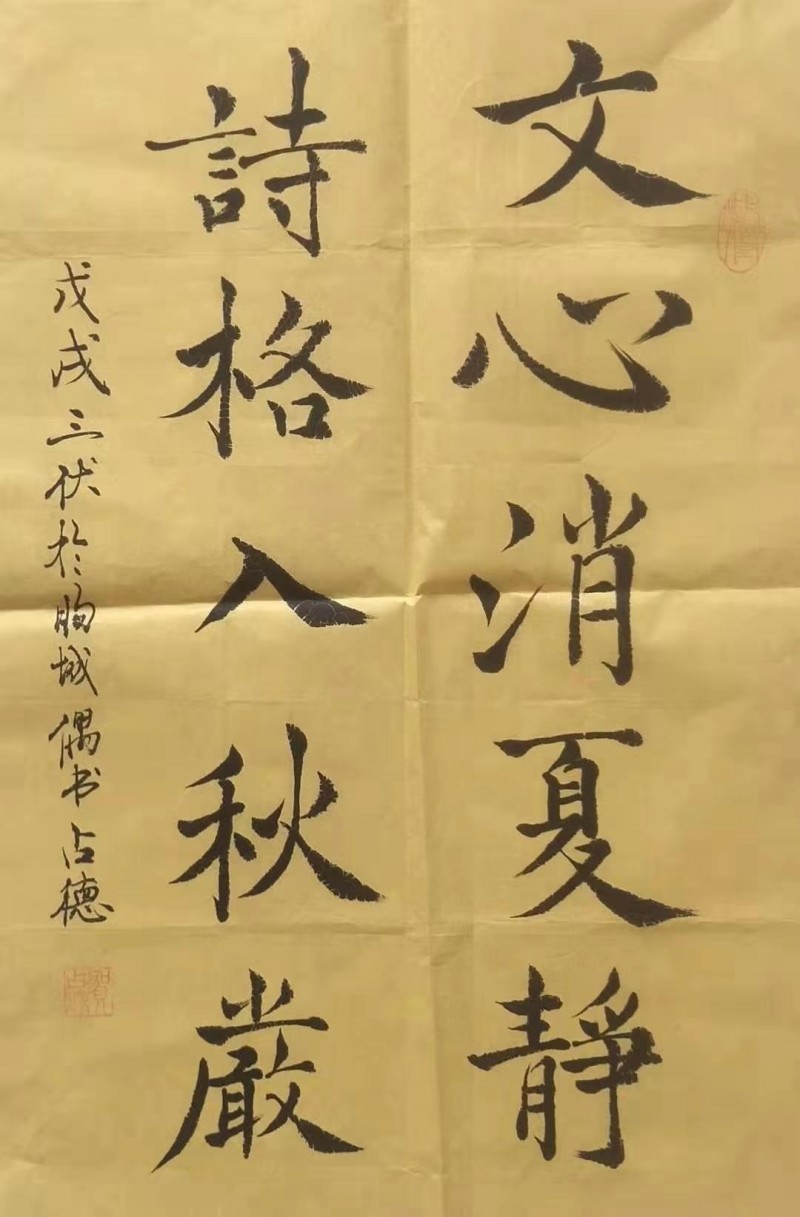 文心消夏靜
詩格入秋嚴
戊戌三伏於朐城偶书占德